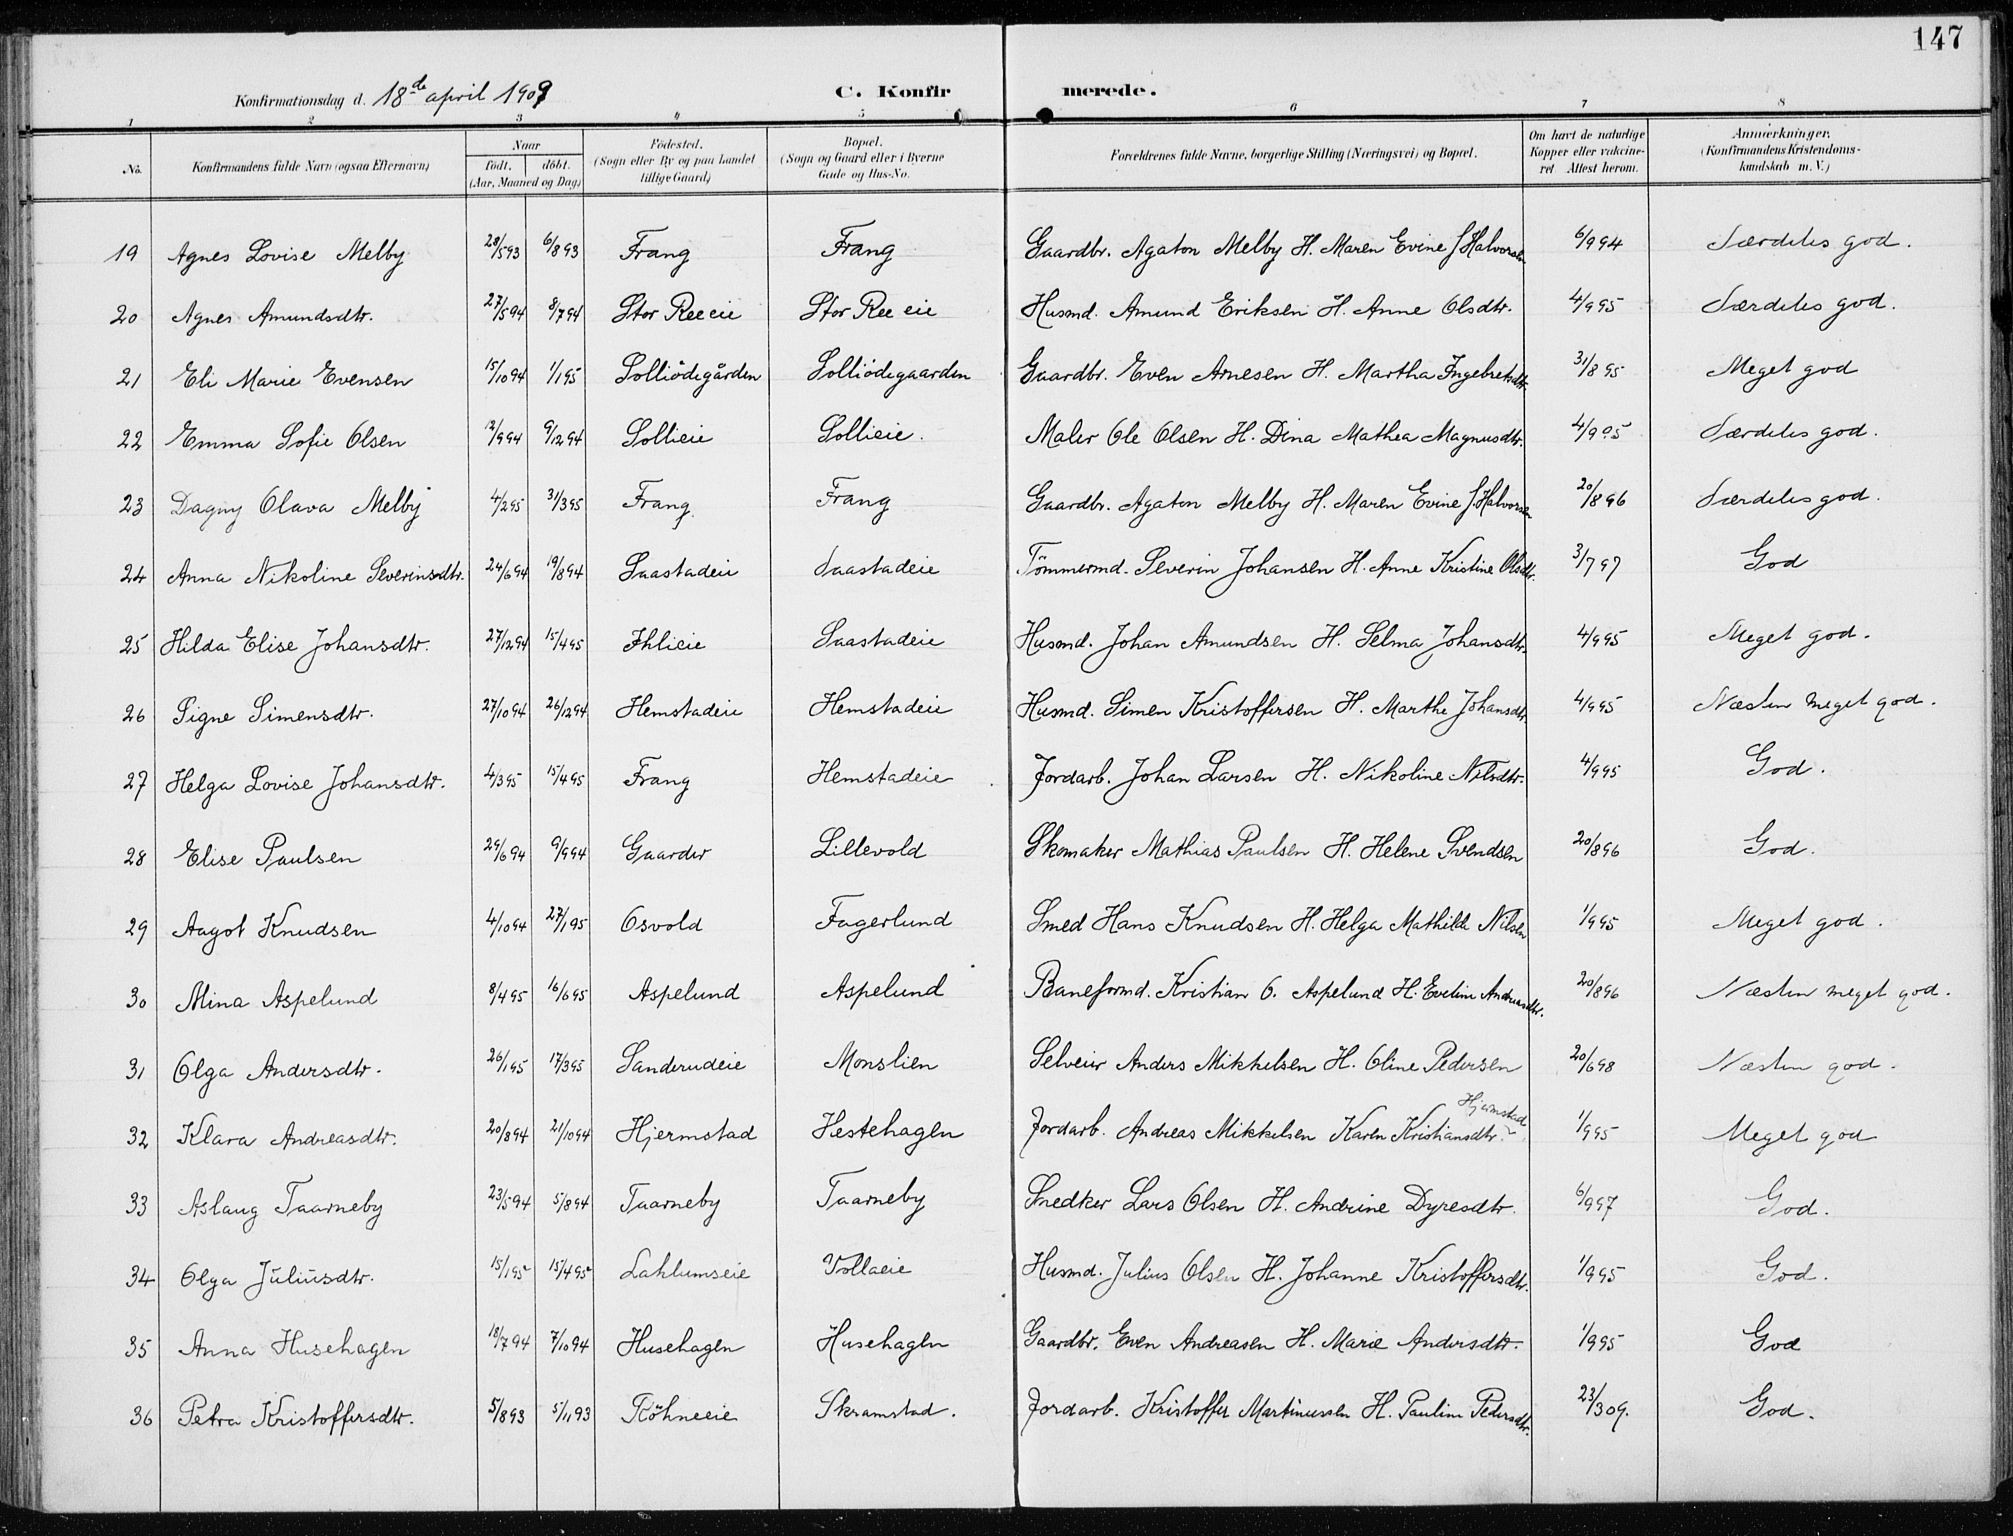 147
Konfirmationsdag d. 18de april 1909 C. Konfirmerede.
1 2 3 4 5 6 7 8
No. Konfirmandens fulde Navn (ogsaa Efternavn) Naar født. døbt. (Aar, Maaned og Dag) Fødested. (Sogn eller By og paa Landet tillige Gaard) Bopæl. (Sogn og Gaard eller i Byerne Gade og Hus-No. Forældrenes fulde Navne, borgerlige Stilling (Næringsvei) og Bopæl. Om havt de naturlige Kopper eller vakcineret Attest herom. Anmærkninger. (Konfirmandens Kristendomskundskab m. V.)
19 Agnes Lovise Melby 28/5 93 6/8 93 Frang Frang Gaardbr. Agaton Melby H. Maren Evine f Halvorsen 6/9 94 Særdeles god.
20 Agnes Amundsdtr. 27/5 94 8/7 94 Stor Ree eie Stor Ree eie Husmd. Amund Eriksen H. Anne Olsdtr. 4/9 95 Særdeles god.
21 Eli Marie Evensen 15/10 94 1/1 95 Solliødegården Solliødegaarden Gaardbr. Even Arnesen H. Martha Ingebretsdtr 31/8 95 Meget god
22 Emma Sofie Olsen /9 94 9/12 94 Sollieie Sollieie. Maler Ole Olsen H. Dina Mathea Magnusdtr. 4/9 05 Særdeles god.
23 Dagny Olava Melby 4/2 95 31/3 95 Frang. Frang Gaardbr. Agaton Melby H. Maren Evine f. Halvorsen 20/8 96 Særdeles god.
24 Anna Nikoline Severinsdtr. 24/6 94 19/8 94 Saastadeie Saastadeie Tömmermd. Severin Johansen H. Anne Kristine Olsdtr. 3/7 97 God
25 Hilda Elise Johansdtr. 27/12 94 15/4 95 Ihlieie Saastadeie Husmd. Johan Amundsen H. Selma Johansdtr. 4/9 95 Meget god.
26 Signe Simensdtr. 27/10 94 26/12 94 Hemstadeie Hemstadeie Husmd. Simen Kristoffersen H. Marthe Johansdtr. 4/9 95 Næsten meget god.
27 Helga Lovise Johansdtr. 4/3 95 15/4 95 Frang Hemstadeie Jordarb. Johan Larsen H. Nikoline Nilsdtr. 4/9 95 God.
28 Elise Paulsen 29/6 94 9/9 94 Gaarder Lillevold Skomaker Mathias Paulsen H. Helene Svendsen 20/8 96 God.
29 Aagot Knudsen 4/10 94 27/1 95 Osvold Fagerlund Smed Hans Knudsen H. Helga Mathilde Nilsen 1/9 95 Meget god.
30 Mina Aspelund 8/4 95 16/6 95 Aspelund Aspelund Baneformd. Kristian O. Aspelund H. Eveline Andreasdtr. 20/8 96 Næsten meget god.
31 Olga Andersdtr. 26/1 95 17/3 95 Sanderudeie Monslien Selveier Anders Mikkelsen H. Oline Pedersen 20/6 98 Næsten god.
32 Klara Andreasdtr. 20/8 94 21/10 94 Hjermstad Hestehagen Jordarb. Andreas Mikkelsen Karen Kristiansdtr. Hjermstad 1/9 95 Meget god
33 Aslaug Taarneby 23/5 94 5/8 94 Taarneby Taarneby Snedker Lars Olsen H. Andrine Dyresdtr. 6/9 97 God.
34 Olga Juliusdtr. 15/1 95 15/4 95 Laklumseie Vollaeie Husmd. Julius Olsen H. Johanne Kristoffersdtr. 1/9 95 God.
35 Anna Husehagen 18/7 94 7/10 94 Husehagen Husehagen Gaardbr. Even Andreasen H. Marie Andersdtr. 1/9 95 God
36 Petra Kristoffersdtr. 5/8 93 5/11 93 Röhneeie Skramstad. Jordarb. Kristoffer Martinussen H. Pauline Pedersdtr. 23/3 09. God.